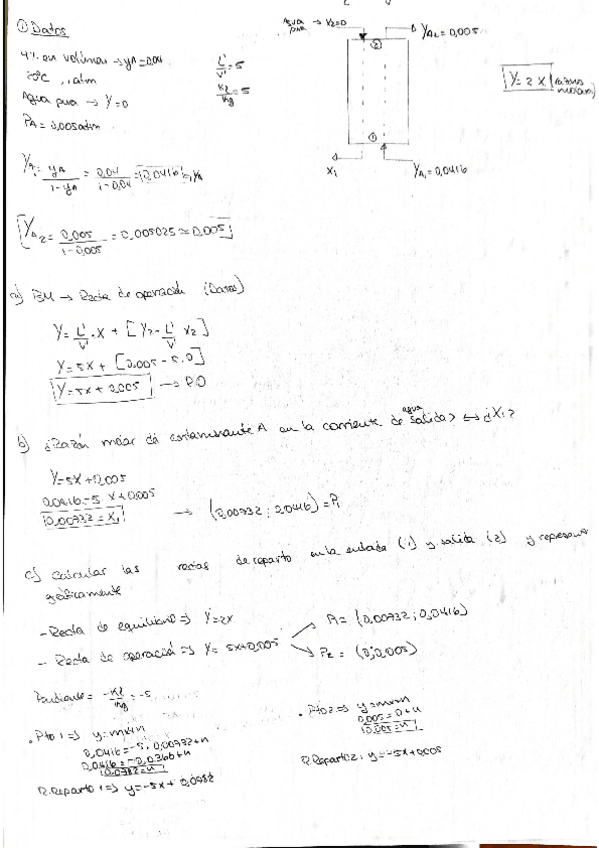 ① Datos
4% en volumen → yA=0.04
20ºC, 1 atm
Agua pura → Y=0
PA = 0,005 atm
L'/V' = 5
Kl/Kg = 5
Agua pura → X2=0
YA2 = 0,005
②
①
X1
YA1 = 0,0416
Y = 2X (razones molares)
YA1 = yA/(1-yA) = 0,04/(1-0,04) = 0,0416 = YA
YA2 = 0,005/(1-0,005) = 0,005025 ≈ 0,005
a) BM → Recta de operación (Datos)
Y = L'/V' · X + [Y2 - L'/V' X2]
Y = 5X + [0.005 - 5.0]
Y = 5X + 0,005 → RO
b) ¿Razón molar de contaminante A en la corriente de agua salida? ⟺ ¿X1?
Y = 5X + 0,005
0,0416 = 5 · X + 0,005
0,00732 = X1 → (0,00732 ; 0,0416) = P1
c) Calcular las rectas de reparto en la entrada (1) y salida (2) y represent
gráficamente
- Recta de equilibrio ⇒ Y = 2X
- Recta de operación ⇒ Y = 5X+0,005
P1 = (0,00732 ; 0,0416)
P2 = (0 ; 0,005)
Pendiente = -Kl/Kg = -5
· Pto 1 ⇒ y=mx+n
0,0416 = -5 · 0,00732 + n
0,0416 = -0,0366 + n
0,0782 = n
R.Reparto 1 ⇒ y = -5x + 0,0782
· Pto 2 ⇒ y=mx+n
0,005 = 0 + n
0,005 = n
R.Reparto 2: y = -5x + 0,005